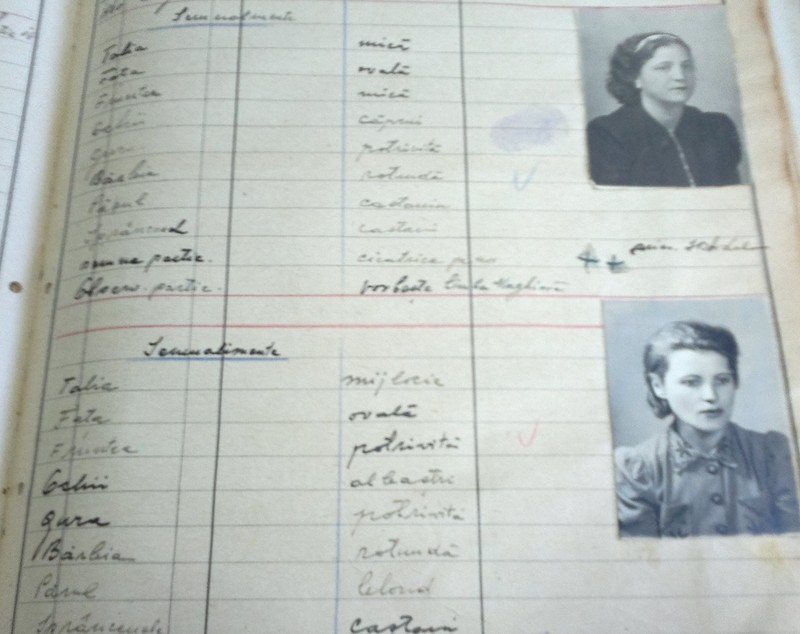 Semnalmente
Talia mică
Fața ovală
Fruntea mică
Ochii căprui
gura potrivită
Bărbia rotundă
Părul castaniu
Sprâncenele castanii
semne partic. cicatrice pe nas
Observ. partic. vorbește limba Maghiară
Semnalimente
Talia mijlocie
Fața ovală
Fruntea potrivită
Ochii albaștri
gura potrivită
Bărbia rotundă
Părul blond
Sprâncenele castanii